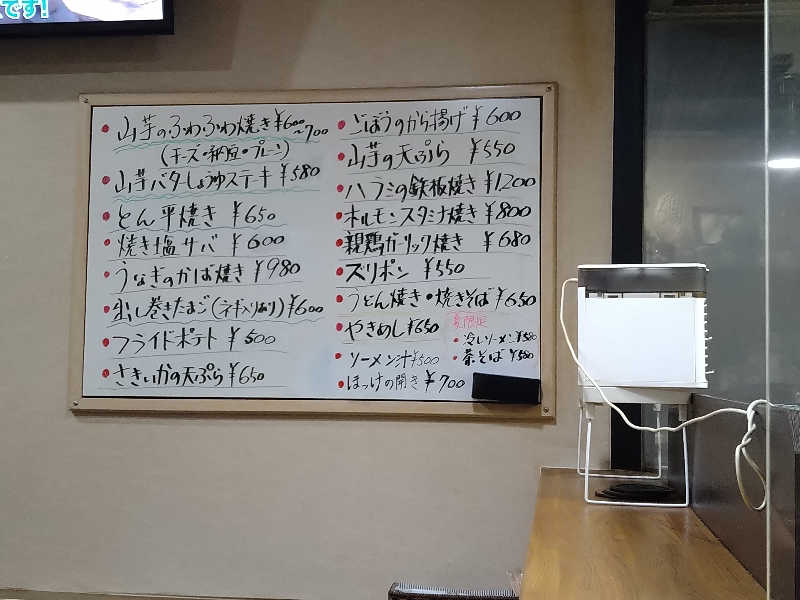 です!
山芋のふわふわ焼き ¥600~700
(チーズ・納豆・プレーン)
山芋バターしょうゆステーキ ¥580
とん平焼き ¥650
焼き塩サバ ¥600
うなぎのかば焼き ¥980
出し巻きたまご(ネギ入り有り)¥600
フライドポテト ¥500
さきいかの天ぷら ¥650
ごぼうのから揚げ ¥600
山芋の天ぷら ¥550
ハラミの鉄板焼き ¥1,200
ホルモンスタミナ焼き ¥800
親鶏ガーリック焼き ¥680
ズリポン ¥550
うどん焼き・焼きそば ¥650
やきめし ¥650
ソーメン汁 ¥500
ほっけの開き ¥700
夏限定
冷しソーメン ¥550
茶そば ¥550